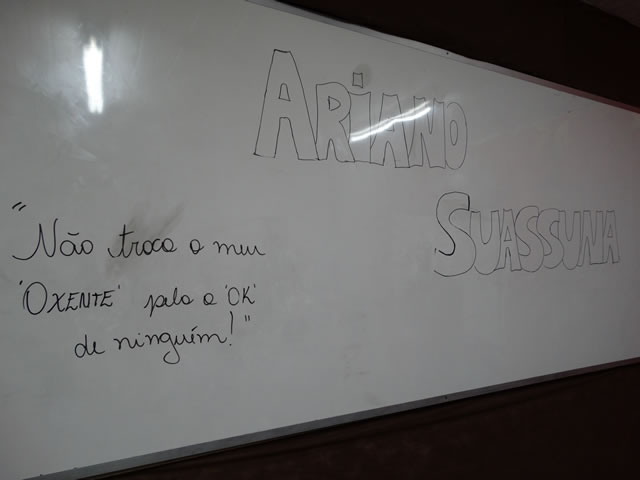 ARIANO
SUASSUNA
"Não troco o meu
'OXENTE' pelo o 'OK'
de ninguém!"